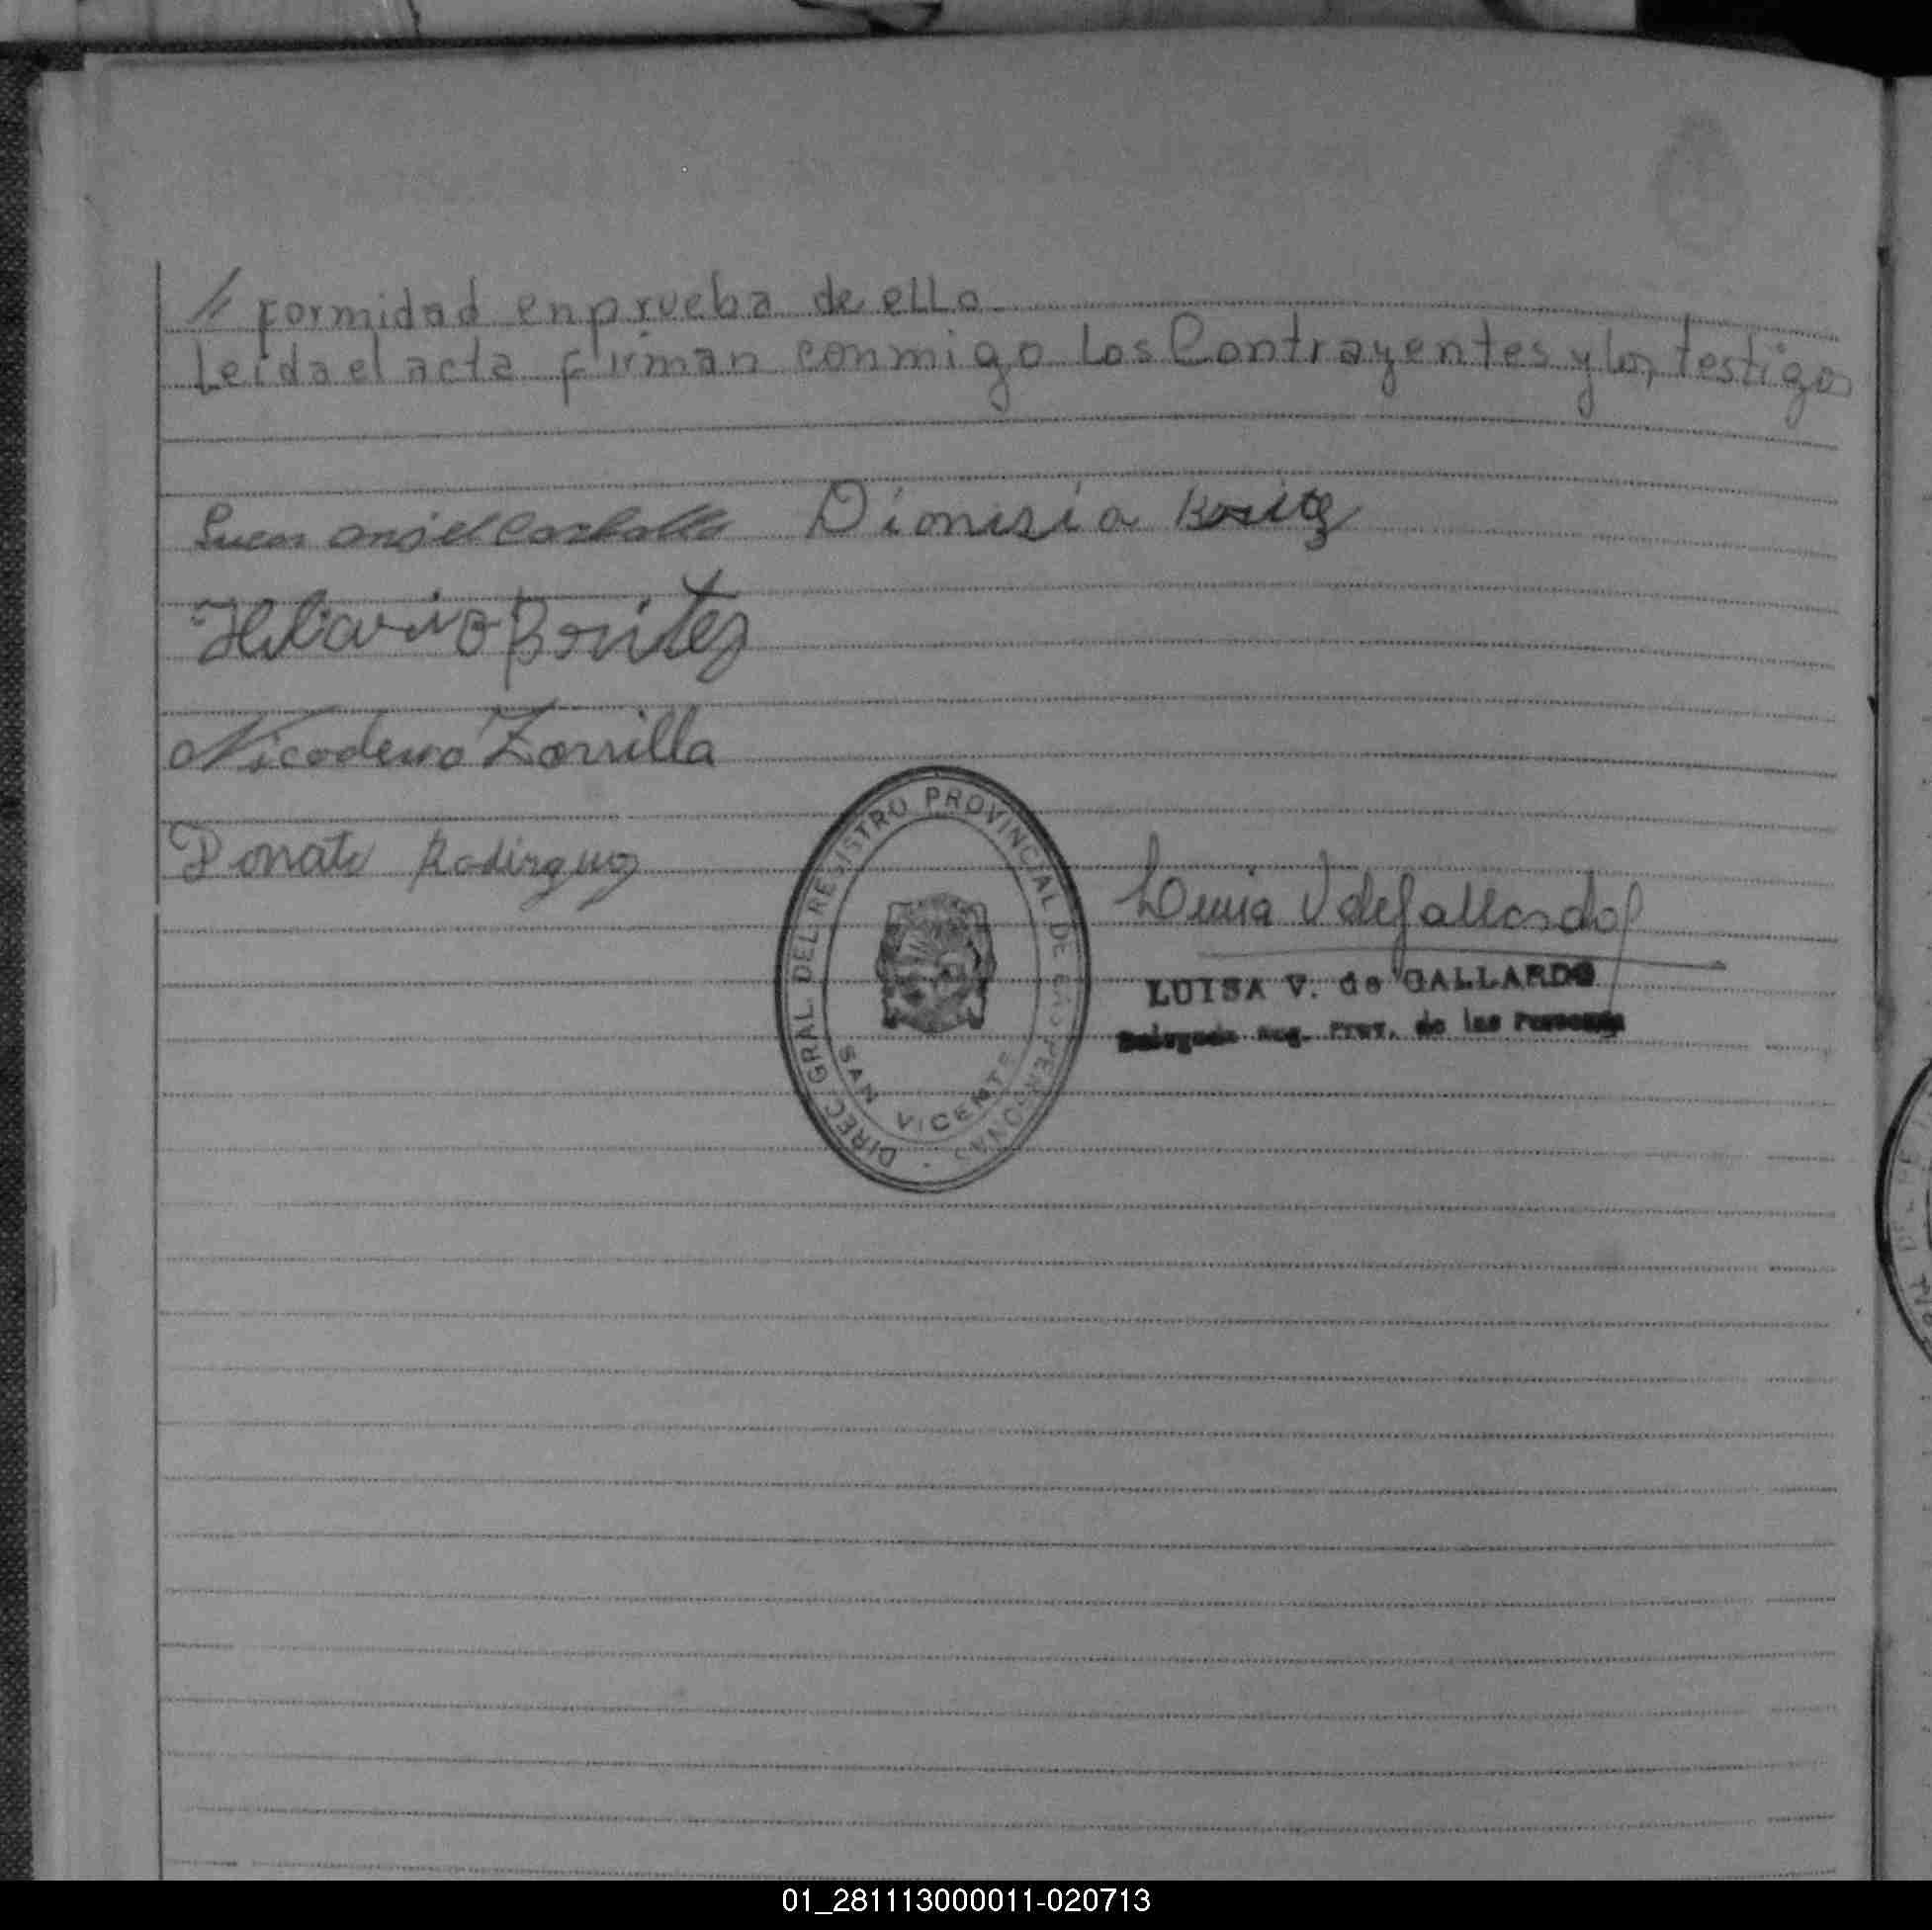 // formidad en prueba de ello
Leída el acta firman conmigo Los Contrayentes y los testigos
Lucas Angel Carballo Dionisia Benitez
Hilario Benitez
Nicodemo Zorrilla
Donato Rodirguez
DIREC. GRAL. DEL REGISTRO PROVINCIAL DE LAS PERSONAS
SAN VICENTE
Luisa V de Gallardo
LUISA V. de GALLARDO
Delegada Reg. Prov. de las Personas
01_281113000011-020713